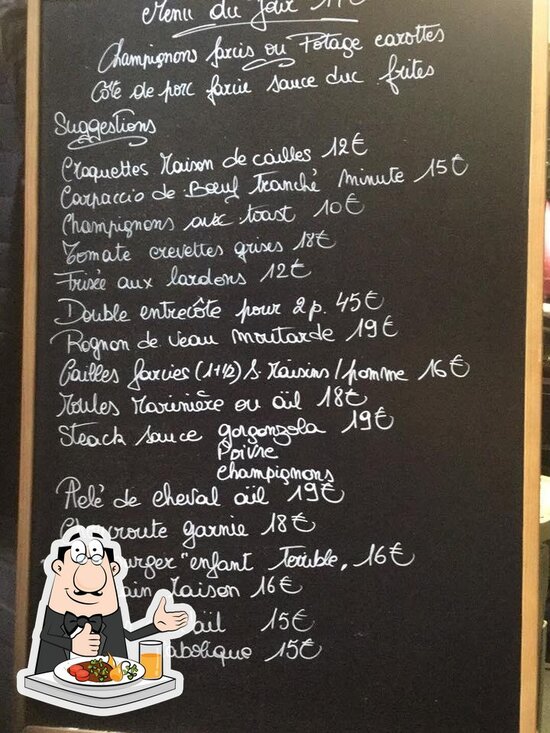 Menu du Jour
Champignons farcis ou Potage carottes
Côte de porc farcie sauce duc frites
Suggestions
Croquettes Maison de cailles 12€
Carpaccio de Bœuf Tranché minute 15€
Champignons aux toast 10€
Tomate crevettes grises 18€
Frisée aux lardons 12€
Double entrecôte pour 2 p. 45€
Rognon de veau moutarde 19€
Cailles farcies (1+1/2) S. Raisins / pomme 16€
Moules Marinière ou aïl 18€
Steack sauce gorgonzola 19€
Poivre
champignons
Pelé de cheval aïl 19€
garnie 18€
"enfant Terrible, 16€
Maison 16€
aïl 15€
15€